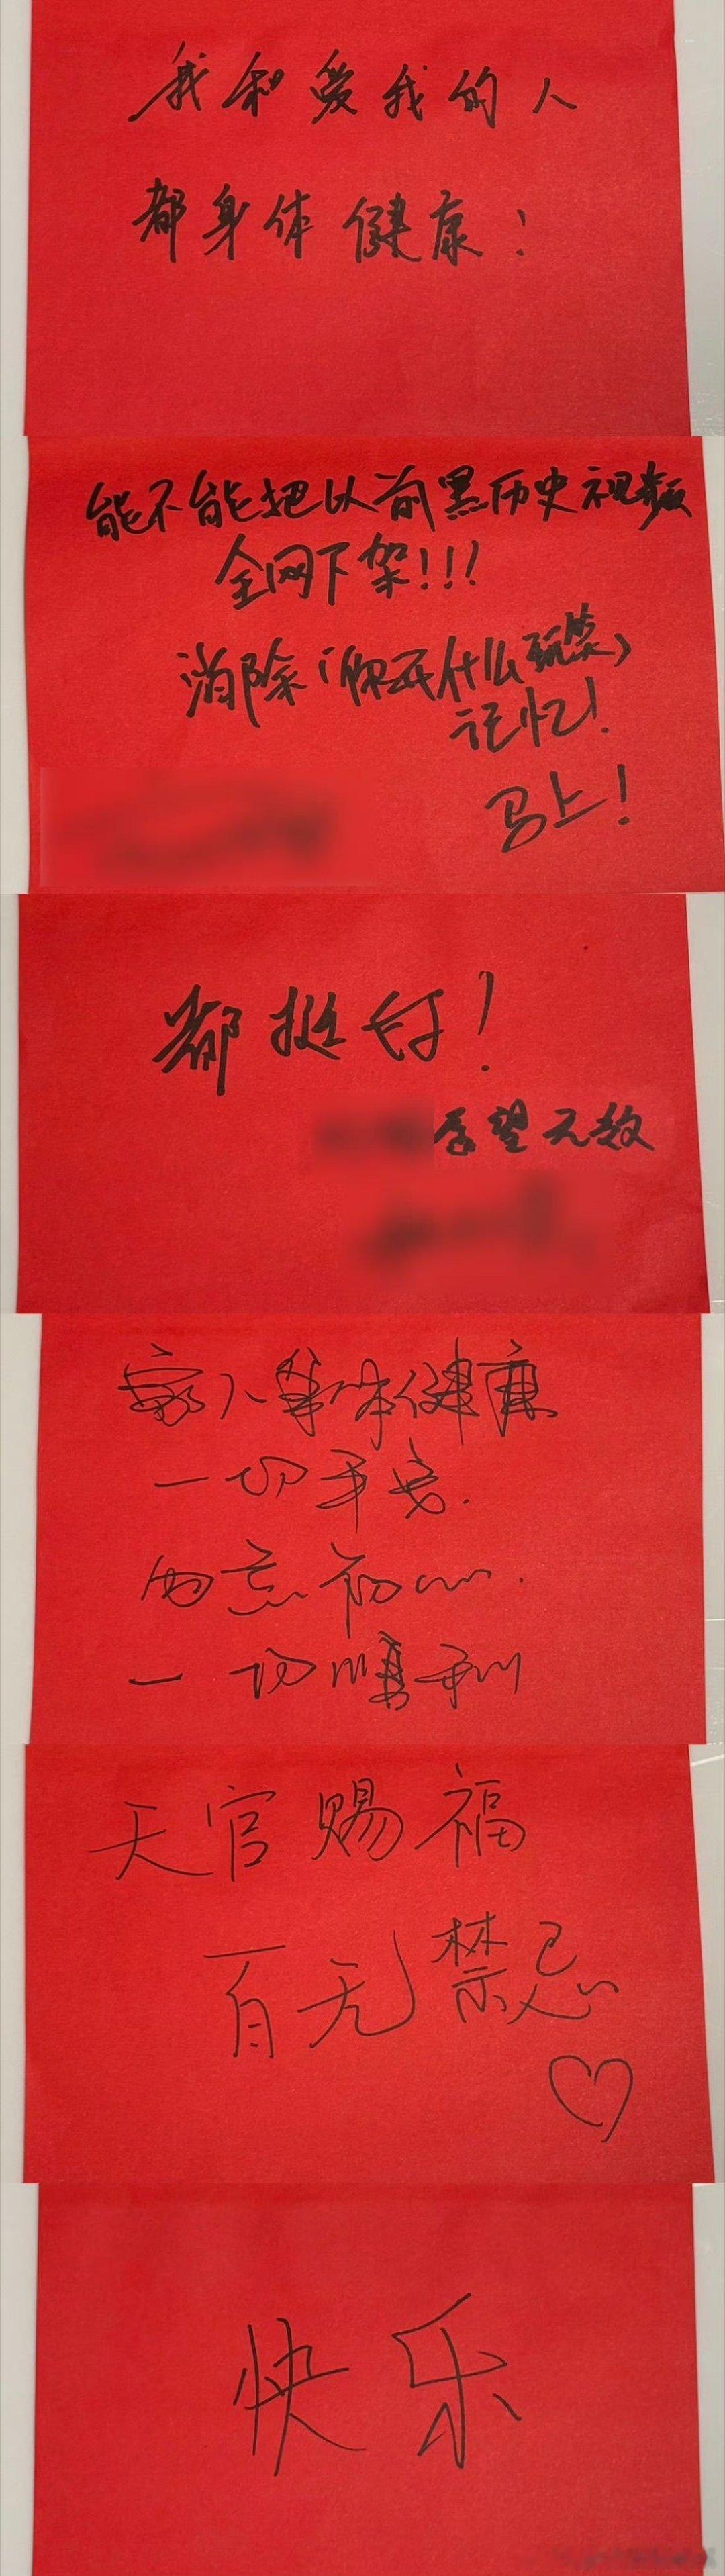 我和爱我的人
都身体健康！
能不能把以前黑历史视频
全网下架！！！
消除“你开什么玩笑”
记忆！
马上！
都挺好！
希望无敌
家人身体健康
一切平安.
勿忘初心.
一切顺利
天官赐福
百无禁忌
快乐